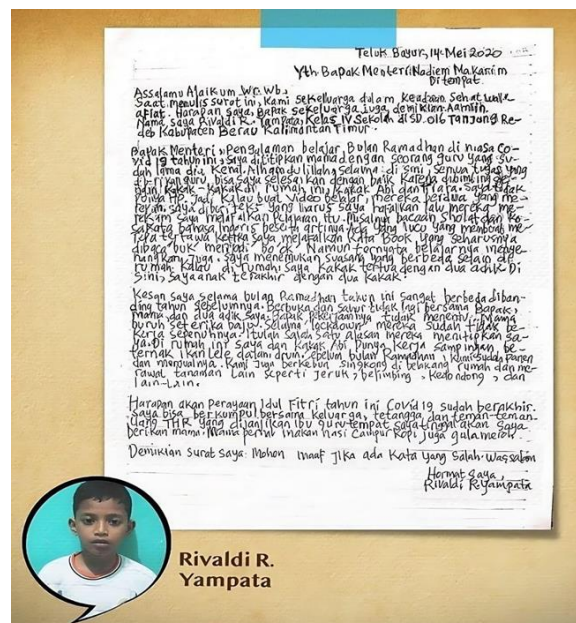 Teluk Bayur, 14 Mei 2020
Yth. Bapak Menteri Nadiem Makarim
Ditempat.
Assalamu Alaikum Wr. Wb.
Saat menulis surat ini, Kami sekeluarga dalam keadaan sehat
afiat. Harapan saya, Bapak sekeluarga juga, demikian. Aamiin.
Nama saya Rivaldi R. Yampata, Kelas IV Sekolah di SD. 016 Tanjung Re-
deb Kabupaten Berau Kalimantan Timur.
Bapak Menteri, Pengalaman belajar, Bulan Ramadhan di masa Co-
vid 19 tahun ini, saya dititipkan mama dengan seorang guru yang su-
dah lama dia, kenal. Alhamdulillah, selama di sini, semua tugas yang
guru, bisa saya selesaikan dengan baik karena dibimbing de-
ngan kakak-kakak di rumah ini, kakak Abi dan Tiara. Saya tidak
punya HP. Jadi kalau buat Video belajar, mereka berdua yang me-
rekam. Saya dibuat teks yang harus saya hafalkan lalu mereka me-
rekam saya melafalkan Pelajaran itu. Misalnya bacaan sholat dan ko-
sakata bahasa Inggris beserta artinya. Ada yang lucu yang membuat me-
reka tertawa ketika saya melafalkan Kata Book yang seharusnya
dibaca buk menjadi bo'ok. Namun ternyata belajarnya menye-
nangkan juga. Saya menemukan suasana yang berbeda selain di
rumah. Kalau di rumah, saya Kakak tertua dengan dua adik. Di
sini, saya anak terakhir dengan dua kakak.
Kesan saya selama bulan Ramadhan tahun ini sangat berbeda diban-
ding tahun sebelumnya. Berbuka dan sahur tidak lagi bersama Bapak,
mama dan dua adik saya. Bapak pekerjaannya tidak menentu. Mama
buruh seterika baju. Selama lockdown mereka sudah tidak be-
kerja sepenuhnya. Itulah salah satu alasan mereka menitipkan sa-
ya di rumah ini. Saya dan kakak Abi Punya kerja sampingan, be-
ternak ikan lele dalam drum. Sebelum bulan Ramadhan, Kami sudah panen
dan menjualnya. Kami juga berkebun singkong di belakang rumah dan me-
rawat tanaman Lain seperti jeruk, belimbing, Kedondong, dan
lain-lain.
Harapan akan perayaan Idul Fitri tahun ini Covid 19 sudah berakhir.
Saya bisa berkumpul bersama keluarga, tetangga, dan teman-teman.
Uang THR yang dijanjikan Ibu guru tempat saya tinggal akan saya
berikan mama. Mama pernah makan nasi campur Kopi juga gula merah.
Demikian surat saya. Mohon maaf jika ada Kata yang salah. Wassalam
Hormat saya,
Rivaldi R. Yampata
Rivaldi R.
Yampata